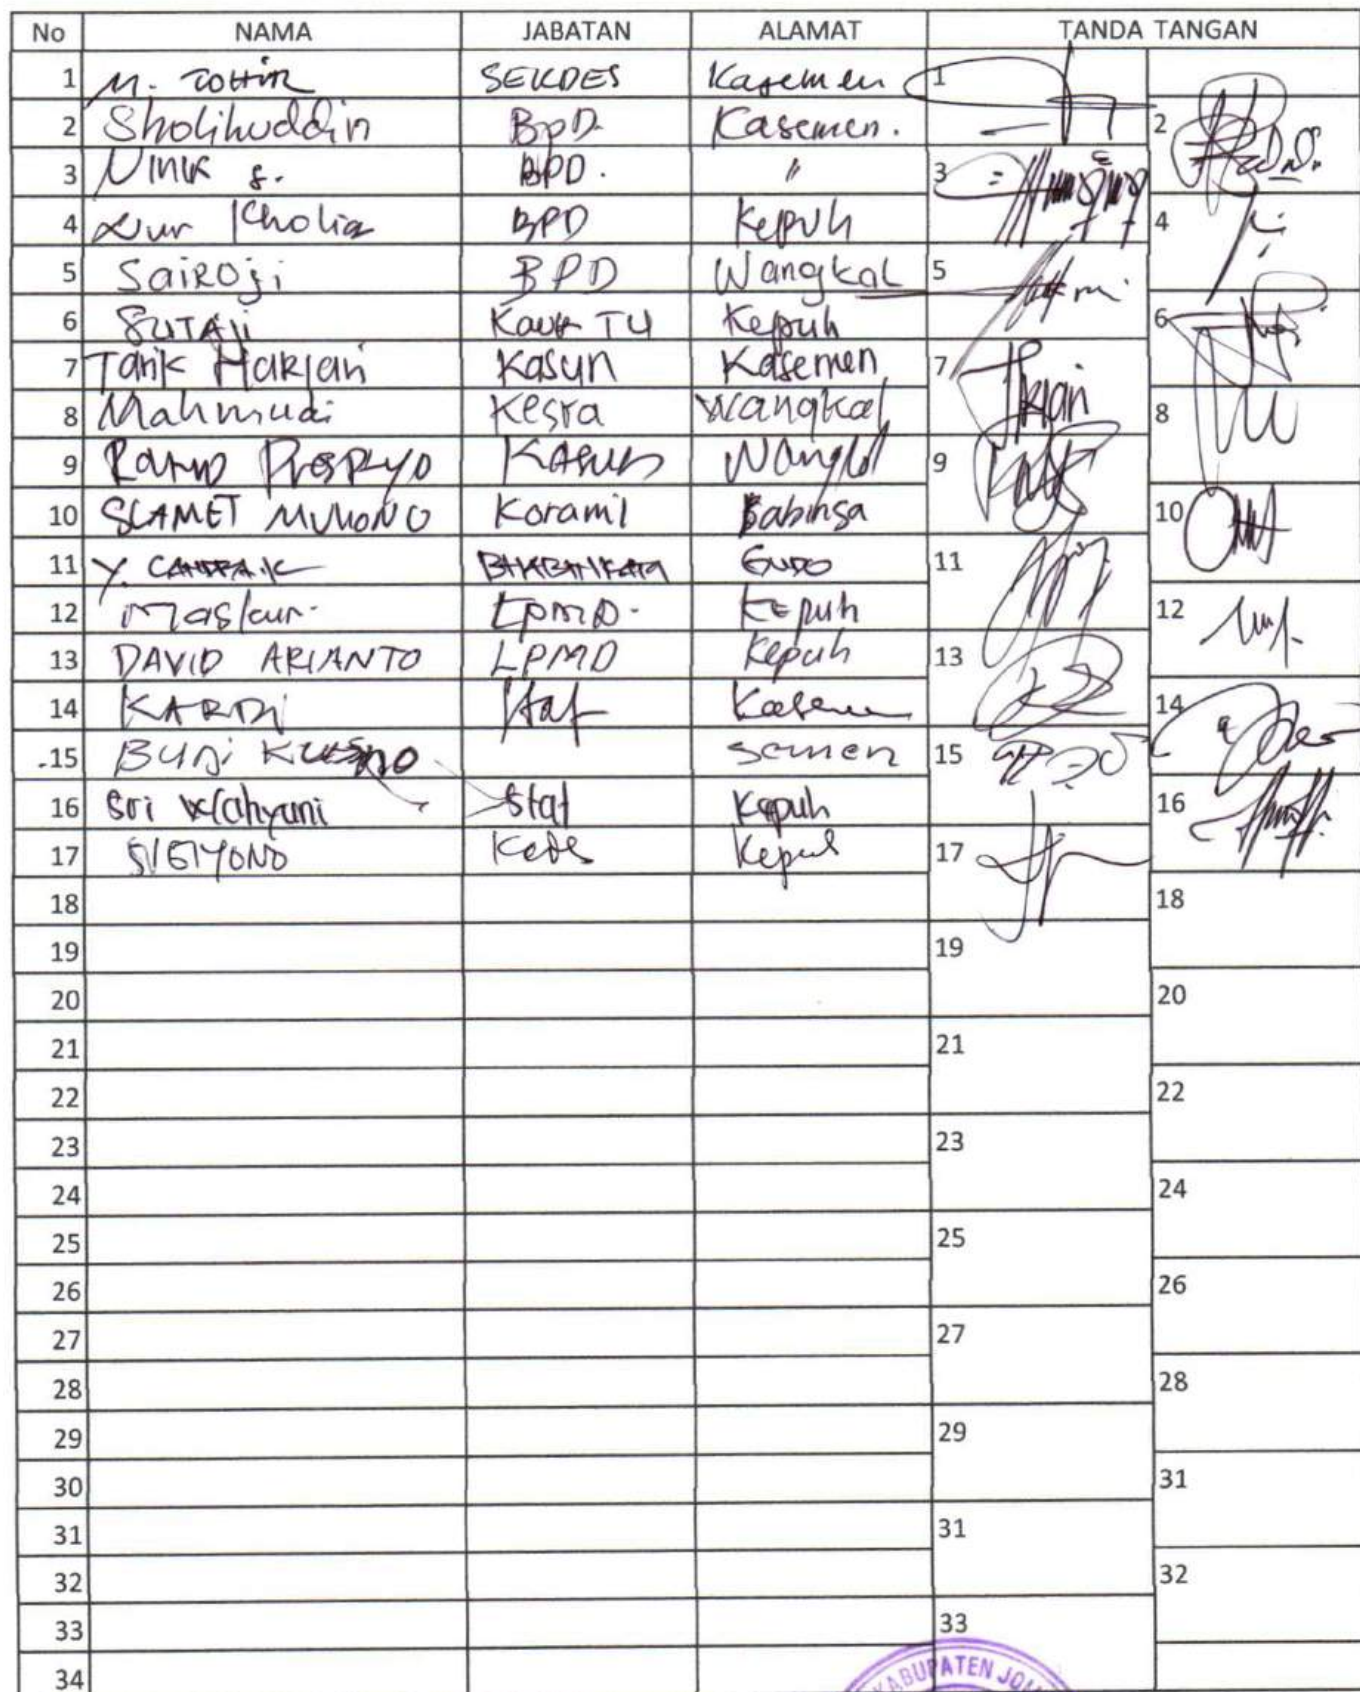 No NAMA JABATAN ALAMAT TANDA TANGAN
1 M. TOHIR SEKDES Kasemen 1
2 Sholihuddin BPD. Kasemen. 2
3 s. BPD. " 3
4 Nur Kholia BPD Kepuh 4
5 SaiROji BPD Wangkal 5
6 SUTAJI Kaur TU Kepuh 6
7 Tarik Harjan Kasun Kasemen 7
8 Mahmudi Kesra Wangkal 8
9 Kasun 9
10 SLAMET MULYONO Koramil Babinsa 10
11 Y. CANDRA K 11
12 Maskur. LPMD. Kepuh 12
13 DAVID ARIANTO LPMD Kepuh 13
14 KARDI Staf 14
.15 BUDi KUSNO semen 15
16 Sri Wahyuni Staf Kepuh 16
17 Kades Kepuh 17
18 18
19 19
20 20
21 21
22 22
23 23
24 24
25 25
26 26
27 27
28 28
29 29
30 31
31 31
32 32
33 33
34
KABUPATEN